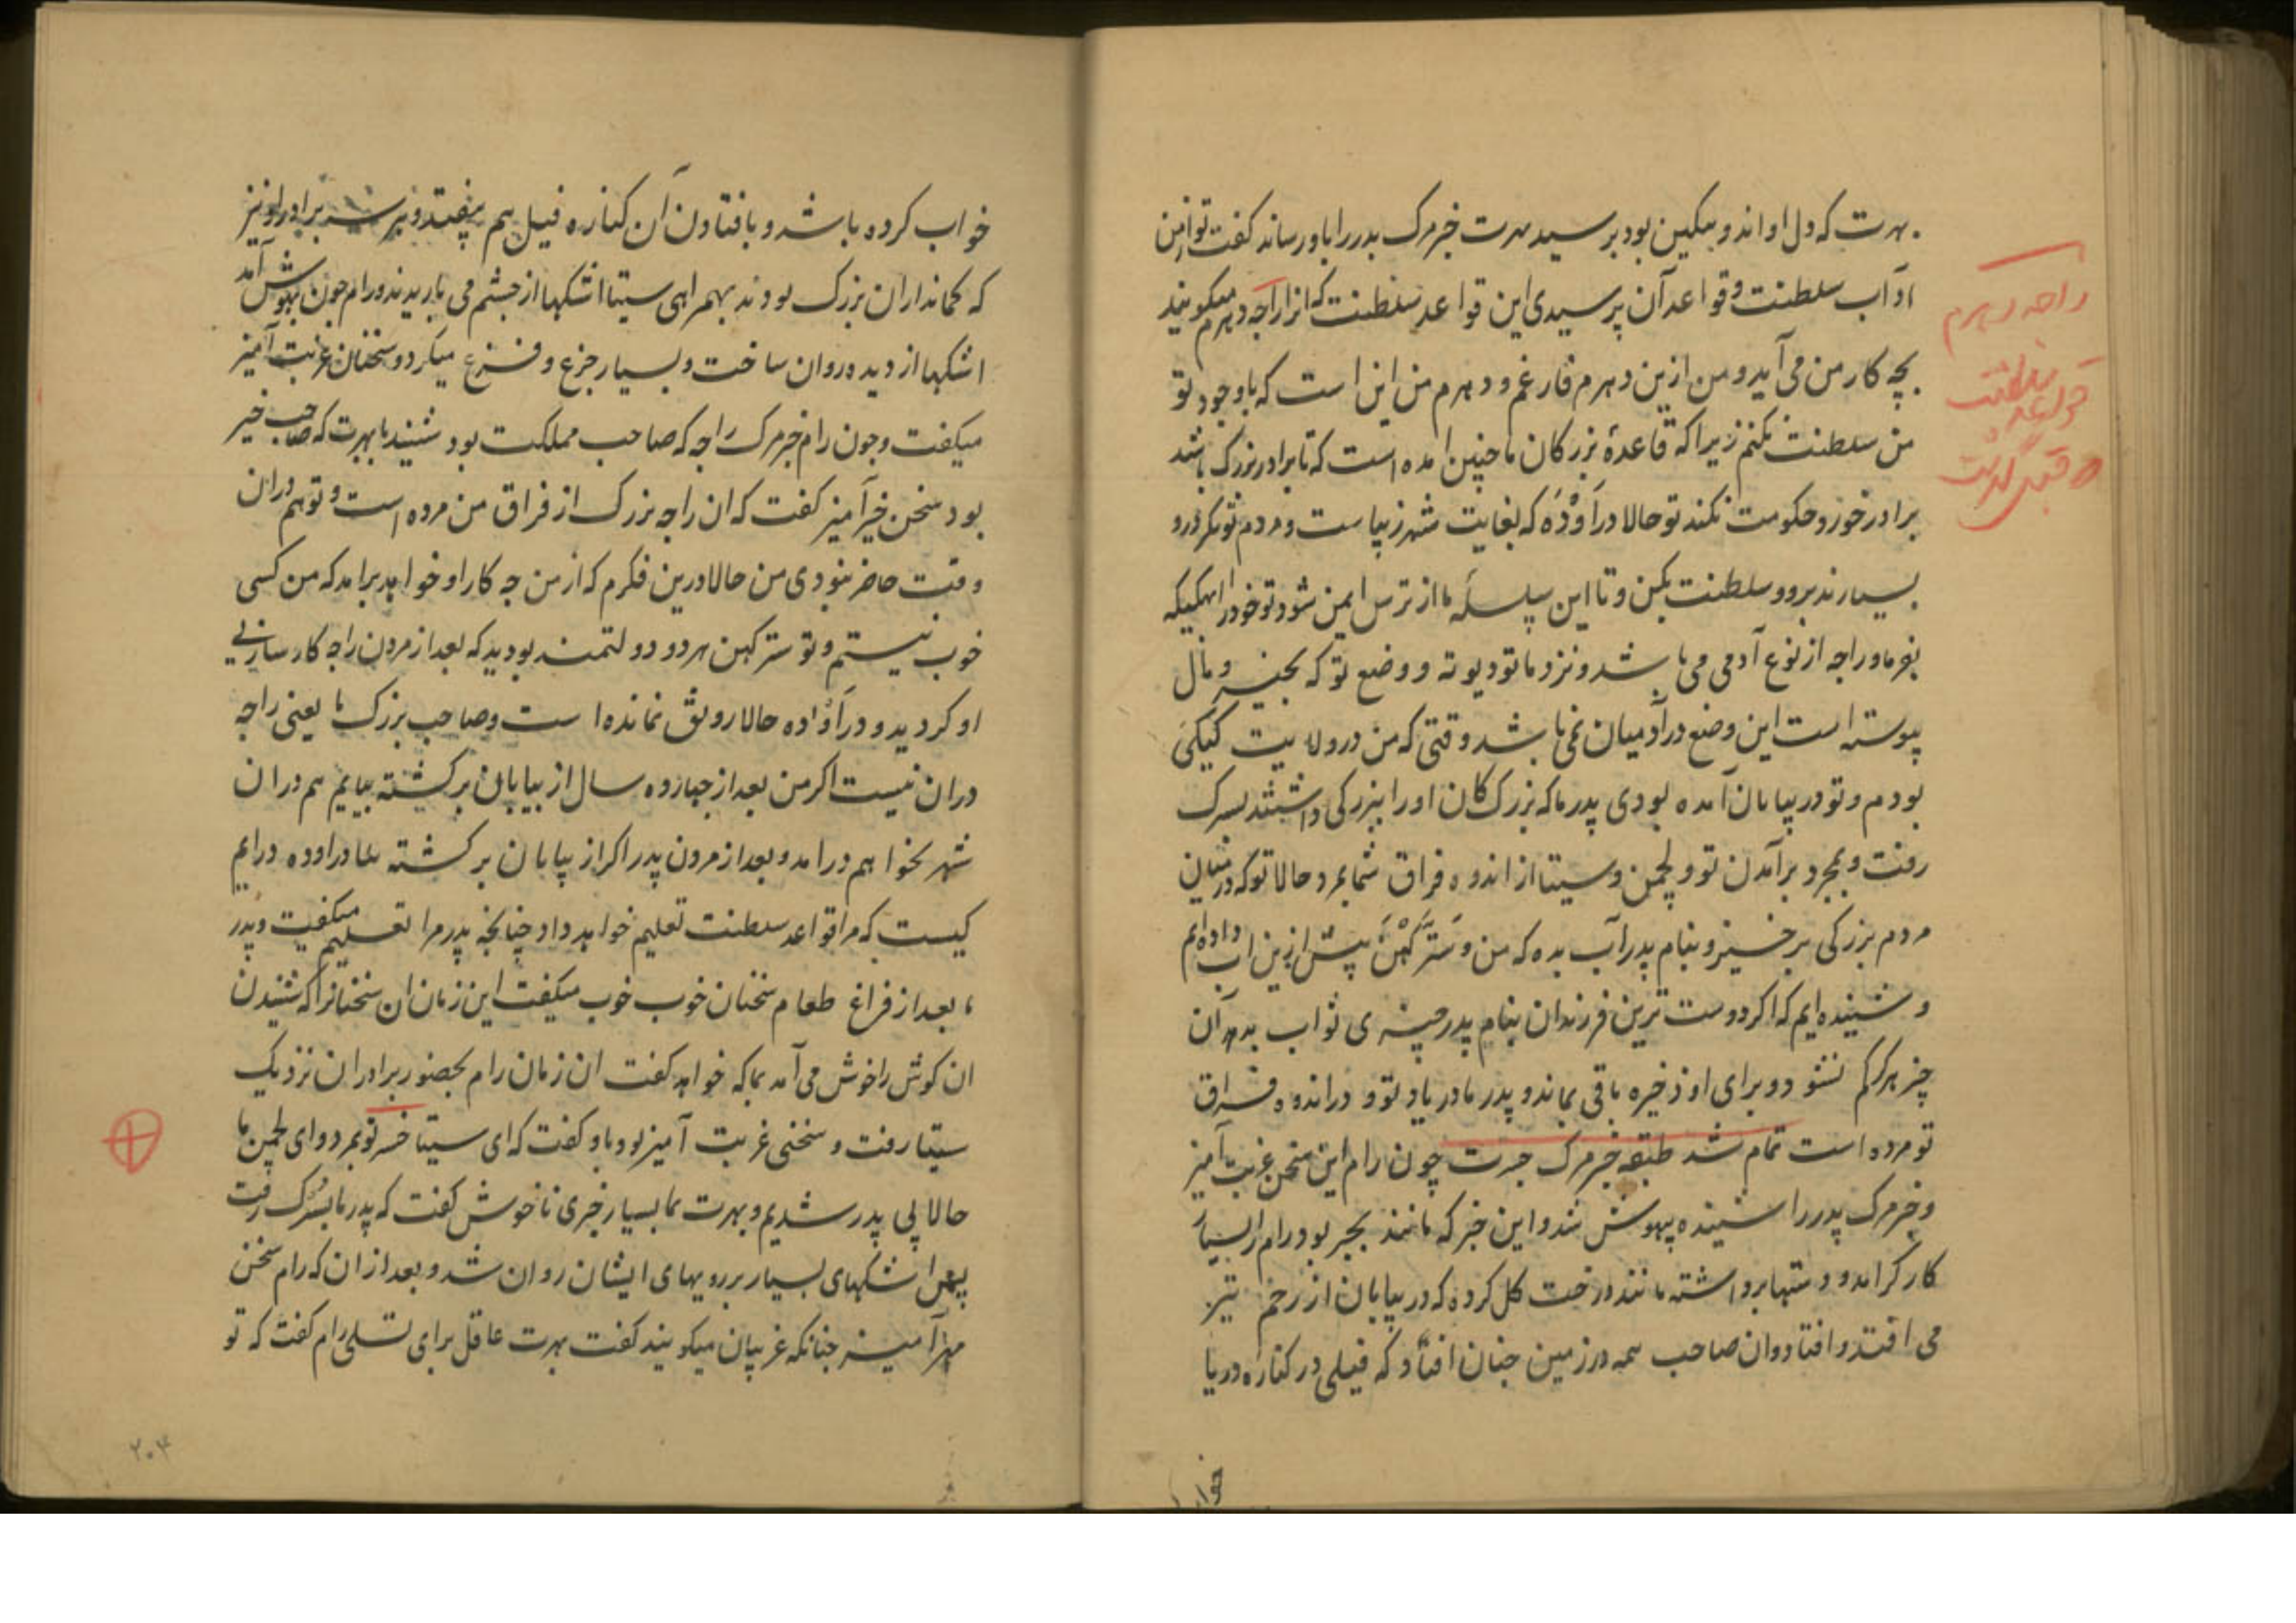 بهرت که دل او اندوهگین بود بر سید بهرت خبر مرک پدر را باو رساند کفت تو از من
آداب سلطنت و قواعد آن پرسیدی این قواعد سلطنت که آنرا راجه دهرم میکویند
بچه کار من می آید و من ازین دهرم فارغم و دهرم من این است که باوجود تو
من سلطنت نکنم زیرا که قاعدهٔ بزرکان ما چنین آمده است که تا برادر بزرک باشد
برادر خورد حکومت نکند تو حالا در اَوْدَه که بغایت شهر زیبا ست و مردم تونکر درو
بسیارند برو و سلطنت بکن و تا این سلسله ما از ترس ایمن شود تو خود را
بفرما و راجه از نوع آدمی می باشد و نزد ما تو دیوته و وضع تو که بخیر و مال
پیوسته است این وضع در آدمیان نمی باشد وقتی که من در ولایت کَیکَی
بودم و تو در بیابان آمده بودی پدر ما که بزرک کان او را بزرکی داشتند بسرک
رفت و بمجرد برآمدن تو و لچمن و سیتا از اندوه فراق شما بمرد حالا تو که در میان
مردم بزرکی برخیز و بنام پدر آب بده که من و سَتَرکَهْنَ پیش ازین آب داده ایم
و شنیده ایم که اکر دوست ترین فرزندان بنام پدر چیزی ثواب بدهد آن
چیز هرکز کم نشود و برای او ذخیره باقی بماند و پدر ما در یاد تو و در اندوه فراق
تو مرده است تمام شد طبقه خبر مرک جسرت چون رام این سخن غربت آمیز
و خبر مرک پدر را شنیده بیهوش شد و این خبر که مانند بجر بود رام را بسیار
کارکر آمد و دستها برداشته مانند درخت کل کرده که در بیابان از زخم تبر
می افتد و افتاد و آن صاحب همه در زمین چنان افتاد که فیلی در کناره دریا
راجه دهرم
قواعد سلطنت
خوا
خواب کرده باشد و با فتادن آن کناره فیل هم بیفتد و هر سه برادر او نیز
که کمانداران بزرک بودند بهمراهی سیتا اشکها از چشم می باریدند و رام چون بهوش آمد
اشکها از دیده روان ساخت و بسیار جزع و فزع میکرد و سخنان غربت آمیز
میکفت و چون رام خبر مرک راجه که صاحب مملکت بود شنید با بهرت که صاحب خیر
بود سخن خیر آمیز کفت که آن راجه بزرک از فراق من مرده است و تو هم دران
وقت حاضر نبودی من حالا درین فکرم که از من چه کار او خواهد برآمد که من کسی
خوب نیستم و تو و سترکهن هر دو دولتمند بودید که بعد از مردن راجه کارسازی
او کردید و در اَوُده حالا رونق نمانده است و صاحب بزرک ما یعنی راجه
دران نیست اکر من بعد از چهارده سال از بیابان برکشته بیایم هم دران
شهر نخواهم درآمد و بعد از مردن پدر اکر از بیابان برکشته در اوده درایم
کیست که مرا قواعد سلطنت تعلیم خواهد داد چنانچه پدر مرا تعلیم میکفت و پدر
بعد از فراغ طعام سخنان خوب خوب میکفت این زمان آن سخنانرا که شنیدن
آن کوش را خوش می آمد بما که خواهد کفت آن زمان رام بحضور برادران نزدیک
سیتا رفت و سخنی غربت آمیز بود باو کفت که ای سیتا خسر تو بمرد و ای لچمن ما
حالا بی پدر شدیم و بهرت بما بسیار خبری ناخوش کفت که پدر ما بسُرک رفت
پس اشکهای بسیار بر رویهای ایشان روان شد و بعد از آن که رام سخن
مهر آمیز چنانکه غریبان میکویند کفت بهرت عاقل برای تسلی رام کفت که تو
۲۰۳